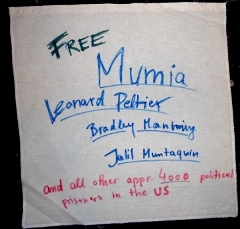 FREE
Mumia
Leonard Peltier
Bradley Manning
Jalil Muntaqwin
and all other appr. 4000 political
prisoners in the US